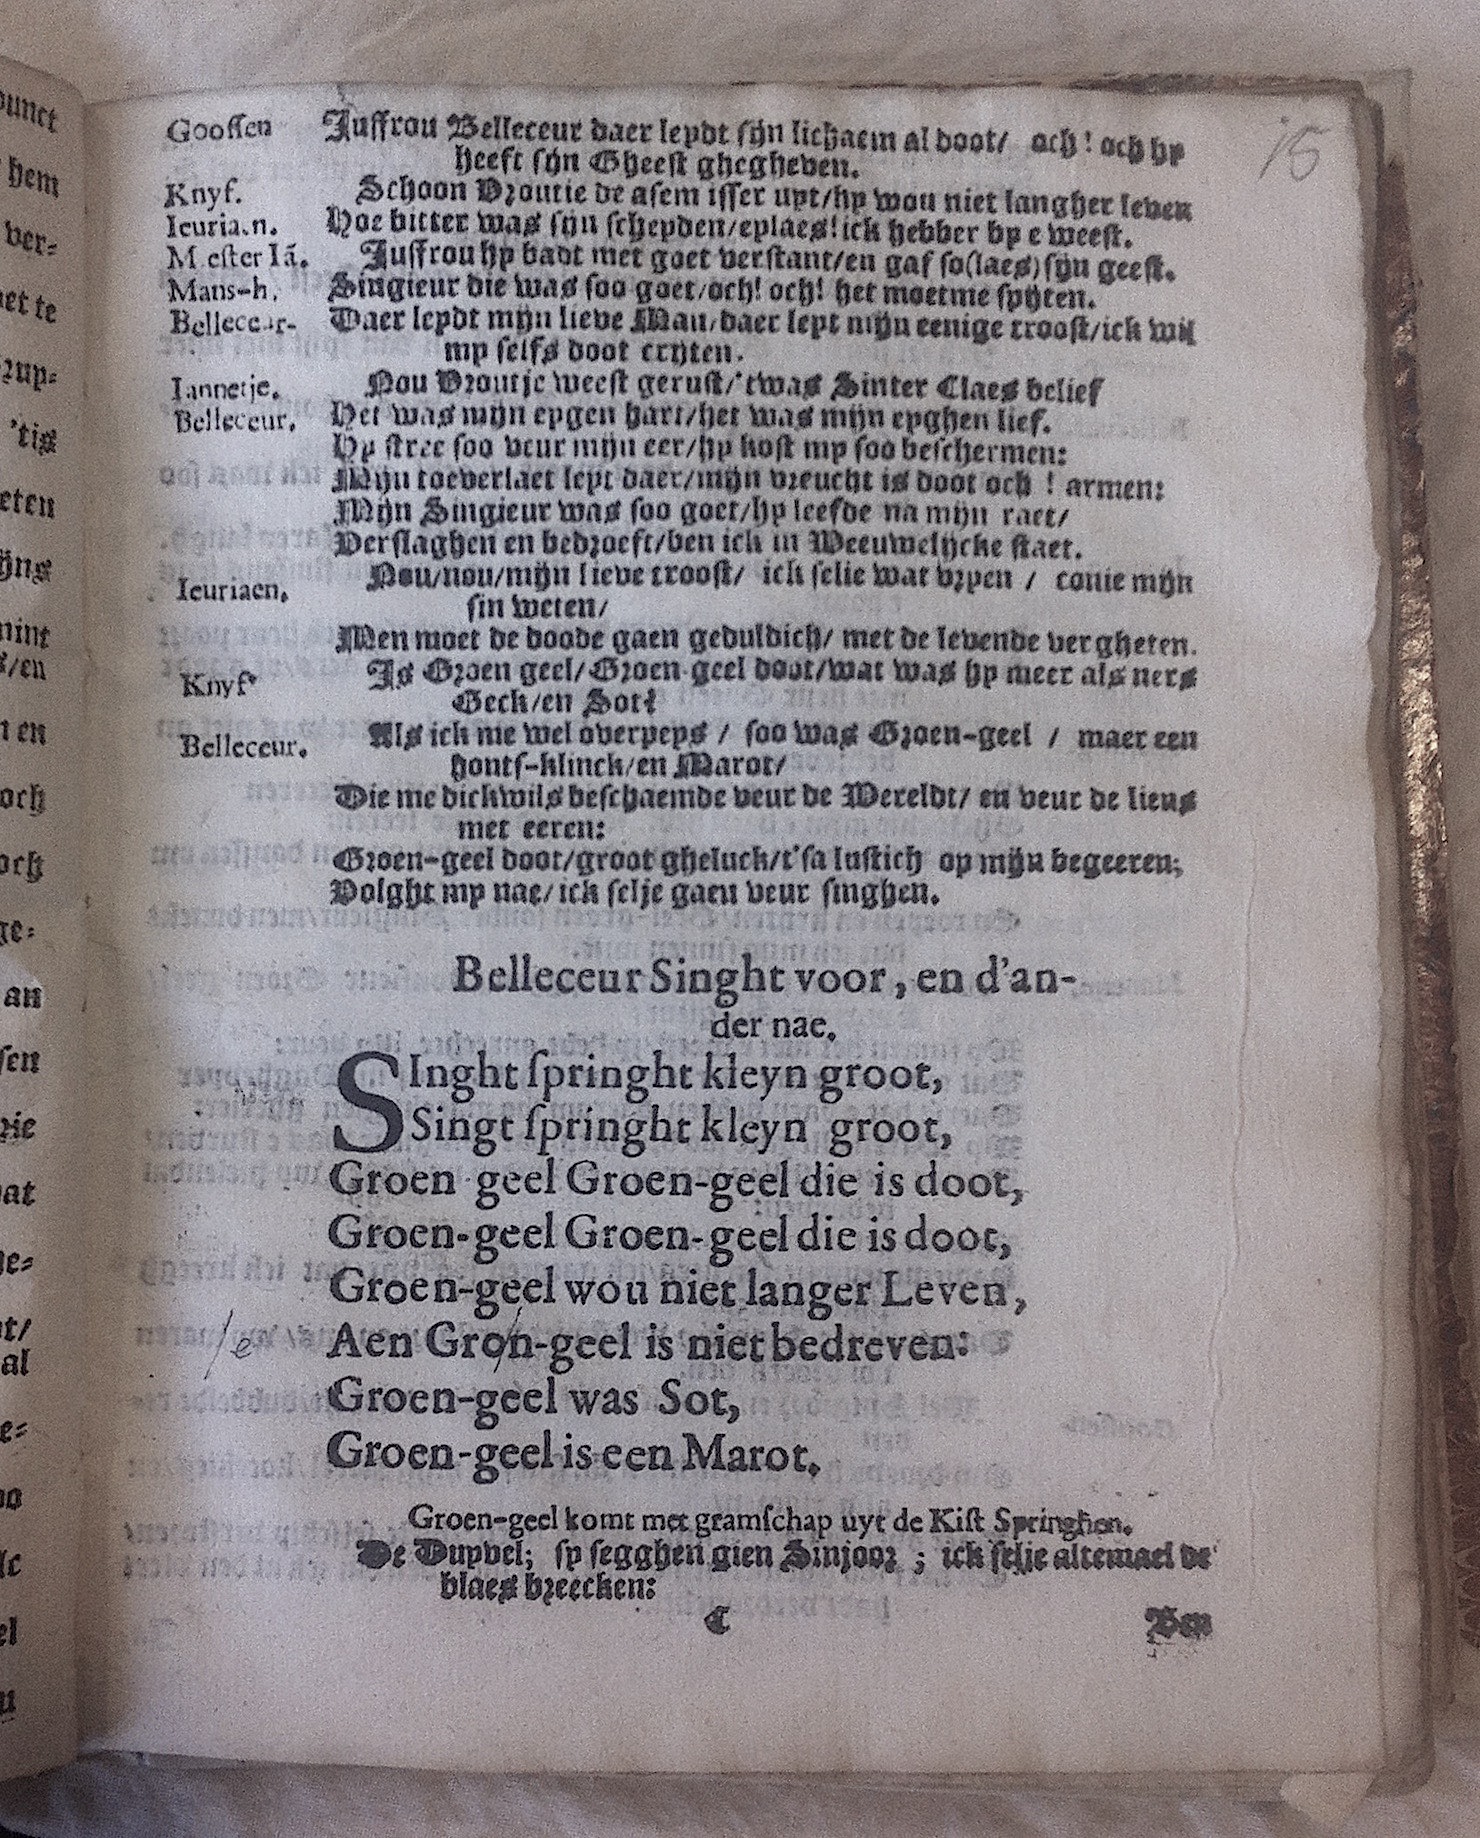 15
Gooſſen Juffrou Belleceur daer leydt ſijn lichaem al doot/ och! och hy
heeft ſijn Gheeſt ghegheven.
Knyf. Schoon Vroutie de aſem iſſer uyt/hy wou niet langher leven
Ieuriaen. Hoe bitter was ſijn ſcheyden/eylaes! ick hebber by e weeſt.
Meeſter Iã. Juffrou hy badt met goet verſtant/en gaf ſo(laes) ſijn geeſt.
Mans-h. Singieur die was ſoo goet/och! och! het moetme ſpijten.
Belleceur- Daer leydt mijn lieve Man/daer leyt mijn eenige trooſt/ick wil
my ſelfs doot crijten.
Iannetje. Nou Vroutje weeſt geruſt/'twas Sinter Claes belief
Belleceur. Het was mijn eygen hart/het was mijn eyghen lief.
Hy ſtree ſoo veur mijn eer/hy koſt my ſoo beſchermen:
Mijn toeverlaet leyt daer/mijn vreucht is doot och! armen:
Mijn Singieur was ſoo goet/hy leefde na mijn raet/
Verſlaghen en bedroeft/ben ick in Weeuwelijcke ſtaet.
Ieuriaen. Nou/nou/mijn lieve trooſt/ ick ſelie wat vryen / conie mijn
ſin weten/
Men moet de doode gaen geduldich/ met de levende vergheten.
Knyf Is Groen geel/Groen-geel doot/wat was hy meer als ners
Geck/en Sot?
Belleceur. Als ick me wel overpeys / ſoo was Groen-geel / maer een
honts-klinck/en Marot/
Die me dickwils beſchaemde veur de Wereldt/ en veur de liens
met eeren:
Groen-geel doot/groot gheluck/t'ſa luſtich op mijn begeeren;
Volght my nae/ick ſelje gaen veur ſinghen.
Belleceur Singht voor, en d'an-
der nae.
SInght ſpringht kleyn groot,
Singt ſpringht kleyn groot,
Groen geel Groen-geel die is doot,
Groen-geel Groen-geel die is doot,
Groen-geel wou niet langer Leven,
/e Aen Gron-geel is niet bedreven:
Groen-geel was Sot,
Groen-geel is een Marot.
Groen-geel komt met gramſchap uyt de Kiſt Springhen.
De Duyvel; ſy ſegghen gien Sinjoor; ick ſelje altemael de
blaes breecken:
C Ben